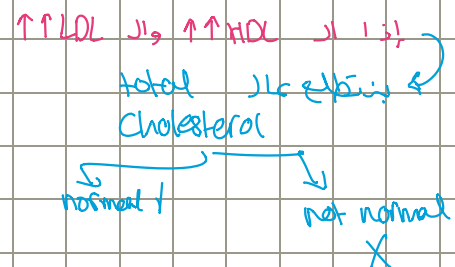 إذا الـ HDL ↑↑ والـ LDL ↑↑
بنتطلع عالـ total
Cholesterol
normal ✓
not normal
X